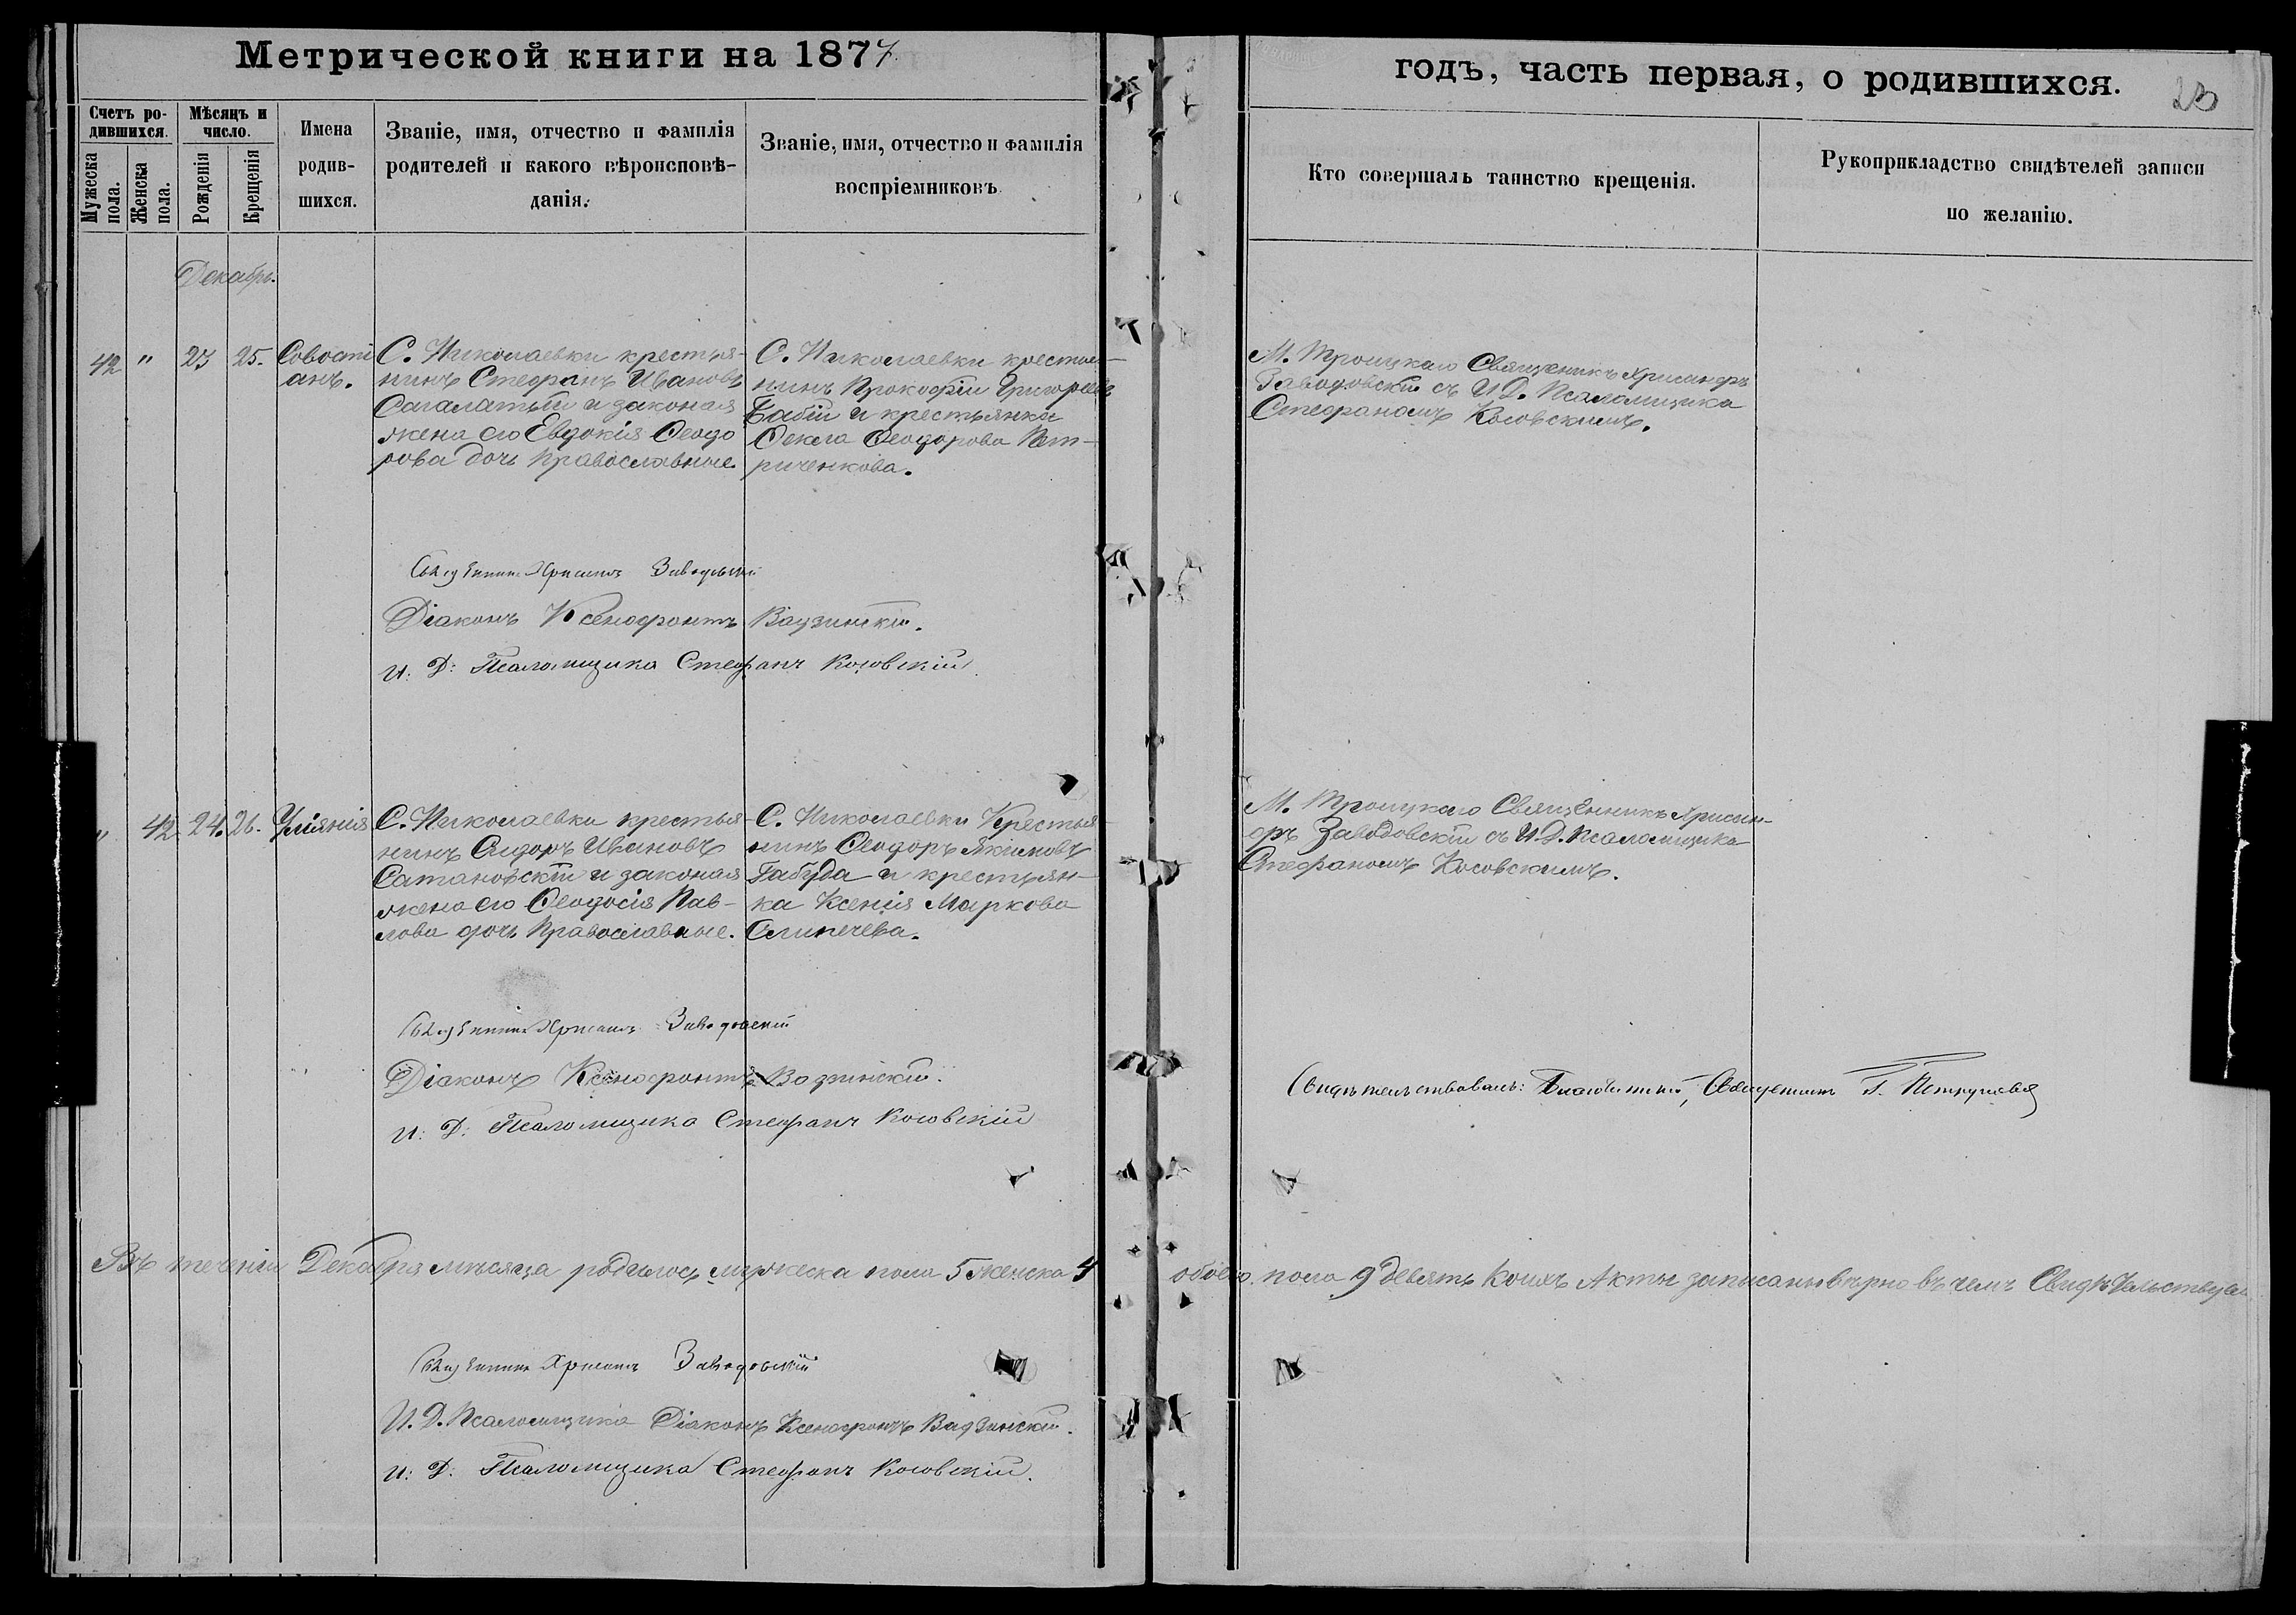 Метрической книги на 1877.
годъ, часть первая, о родившихся.
23
Счетъ ро-
дившихся.
Мужеска
пола.
Женска
пола.
Мѣсяцъ и
число.
Рожденія
Крещенія
Имена
родив-
шихся.
Званіе, имя, отчество и фамилія
родителей и какого вѣроисповѣ-
данія.
Званіе, имя, отчество и фамилія
воспріемниковъ.
Кто совершалъ таинство крещенія.
Рукоприкладство свидѣтелей записи
по желанію.
Декабрь.
42 " 23 25.
Совости
анъ.
С. Николаевки крестья-
нинъ Стефанъ Ивановъ
и законая
жена его Евдокія Ѳеодо
рова дочь православные.
С. Николаевки крестья-
нинъ Прокофій Григорьевъ
Бабій и крестьянка
Ѳекла Ѳеодорова Пет-
риченкова.
М. Троицкаго Священикъ Хрисанфъ
Заводовскій съ И.Д. Псаломщика
Стефаномъ Косовскимъ.
Священникъ Хрисанѳъ Заводовскій
Діаконъ Ксенофонтъ Вадзинскій.
И: Д: Псаломщика Стефанъ Косовскій.
" 42. 24. 26.
Уліянія
С. Николаевки крестья-
нинъ Сидоръ Ивановъ
Сатановскій и законая
жена его Ѳеодосія Пав-
лова дочь Православные.
С. Николаевки Крестья
нинъ Ѳеодоръ Якимовъ
Габуда и крестьян-
ка Ксенія Маркова
М. Троицкаго Священникъ Хрисан-
фъ Заводовскій съ И.Д. Псаломщика
Стефаномъ Косовскимъ.
Священникъ Хрисанѳъ Заводовскій
Діаконъ Ксенофонтъ Вадзинскій.
И: Д: Псаломщика Стефанъ Косовскій
Свидѣтельствовалъ: Благочинный, Священникъ
Въ теченіи Декабря мѣсяца родилось мужеска пола 5 женска 4 обоего пола 9 девять коихъ Акты записаны вѣрно въ чемъ Свидѣтельствуемъ
Священникъ Хрисанѳъ Заводовскій
И.Д. Псаломщика Діаконъ Ксенофонтъ Вадзинскій.
И: Д: Псаломщика Стефанъ Косовскій.